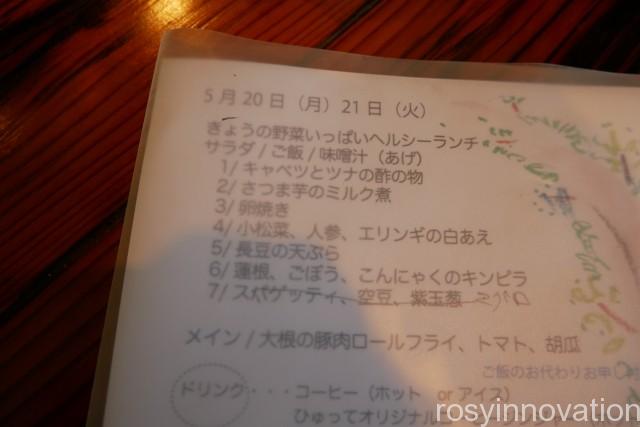 5月20日（月）21日（火）
きょうの野菜いっぱいヘルシーランチ
サラダ / ご飯 / 味噌汁（あげ）
1/ キャベツとツナの酢の物
2/ さつま芋のミルク煮
3/ 卵焼き
4/ 小松菜、人参、エリンギの白あえ
5/ 長豆の天ぷら
6/ 蓮根、ごぼう、こんにゃくのキンピラ
7/ スパゲッティ、空豆、紫玉葱
メイン / 大根の豚肉ロールフライ、トマト、胡瓜
ご飯のお代わりお申
ドリンク・・・コーヒー（ホット or アイス）
ひゅってオリジナル
rosyinnovation